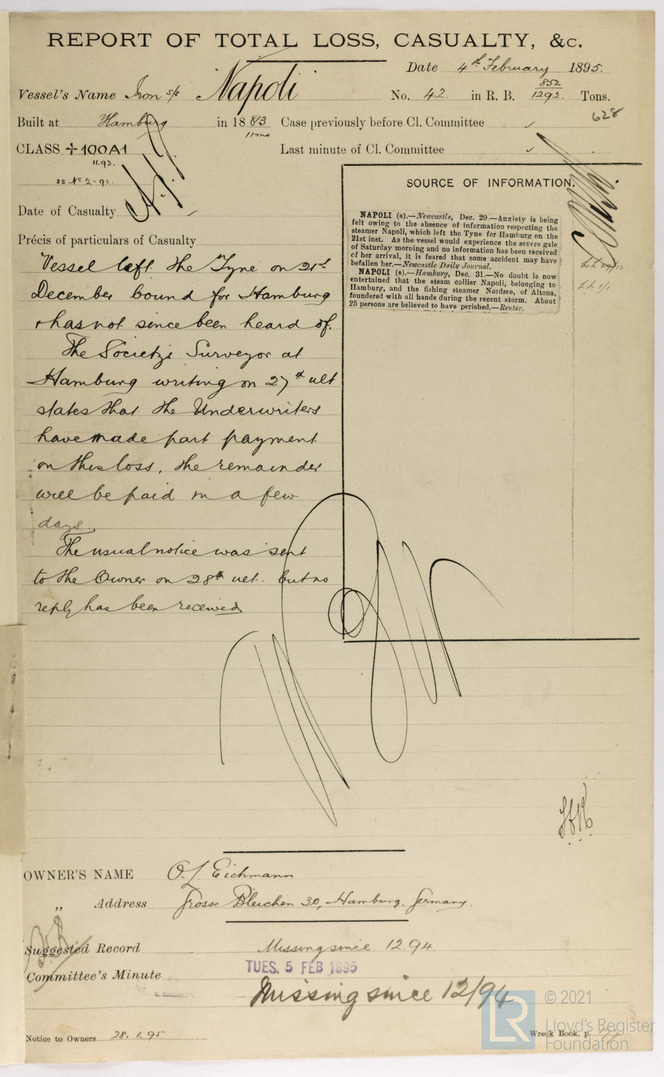 REPORT OF TOTAL LOSS, CASUALTY, &c.
Date 4th February 1895.
Vessel's Name Iron s/s Napoli No. 42 in R. B. 852 / 1293 Tons.
628
Built at Hamburg in 1883 Case previously before Cl. Committee ✓
11mo
CLASS +100A1 Last minute of Cl. Committee ✓
11.93.
SS No 2-91
SOURCE OF INFORMATION.
Date of Casualty
Précis of particulars of Casualty
NAPOLI (s).—Newcastle, Dec. 29.—Anxiety is being
felt owing to the absence of information respecting the
steamer Napoli, which left the Tyne for Hamburg on the
21st inst. As the vessel would experience the severe gale
of Saturday morning and no information has been received
of her arrival, it is feared that some accident may have
befallen her.—Newcastle Daily Journal.
NAPOLI (s).—Hamburg, Dec. 31.—No doubt is now
entertained that the steam collier Napoli, belonging to
Hamburg, and the fishing steamer Nordsee, of Altona,
foundered with all hands during the recent storm. About
25 persons are believed to have perished.—Reuter.
Vessel left the Tyne on 21st
December bound for Hamburg
& has not since been heard of.
The Society's Surveyor at
Hamburg writing on 27th ult
states that the Underwriters
have made part payment
on this loss, the remainder
will be paid in a few
days.
The usual notice was sent
to the Owner on 28th ult. but no
reply has been received
OWNER'S NAME O. L. Eichmann
„ Address Grosse Bleichen 30, Hamburg, Germany.
Suggested Record Missing since 12.94
TUES. 5 FEB 1895
Committee's Minute
Missing since 12/94
© 2021
Lloyd's Register
Foundation
LR
Notice to Owners 28.1.95 Wreck Book, p.